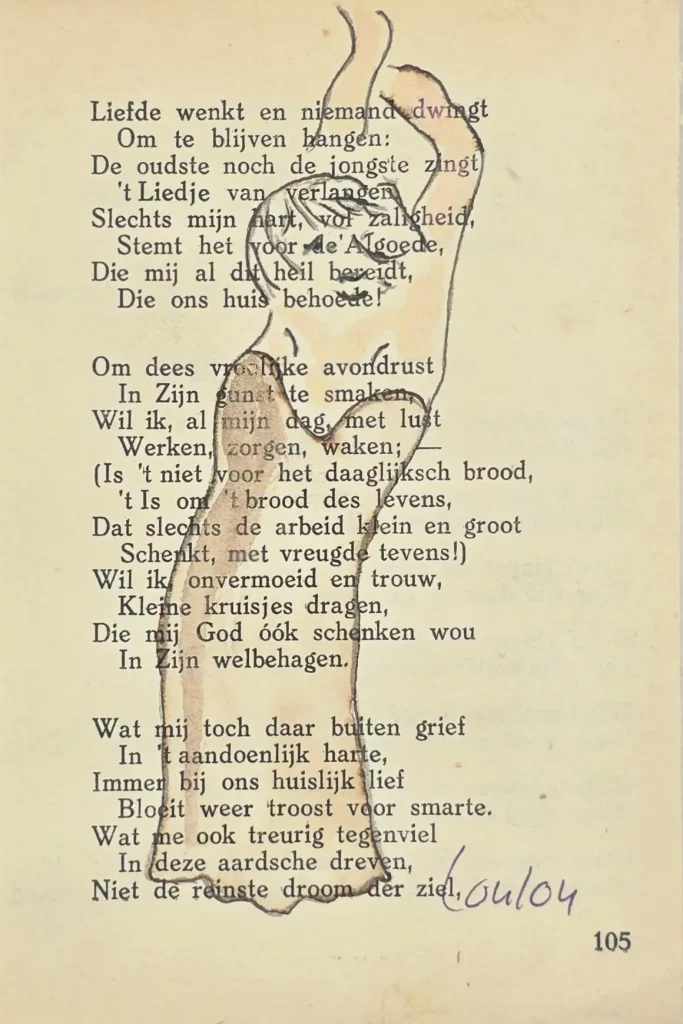 Liefde wenkt en niemand dwingt
Om te blijven hangen:
De oudste noch de jongste zingt
't Liedje van verlangen,
Slechts mijn hart, vol zaligheid,
Stemt het voor de' Algoede,
Die mij al dit heil bereidt,
Die ons huis behoede!
Om dees vroolijke avondrust
In Zijn gunst te smaken,
Wil ik, al mijn dag, met lust
Werken, zorgen, waken; —
(Is 't niet voor het daaglijksch brood,
't Is om 't brood des levens,
Dat slechts de arbeid klein en groot
Schenkt, met vreugde tevens!)
Wil ik, onvermoeid en trouw,
Kleine kruisjes dragen,
Die mij God óók schenken wou
In Zijn welbehagen.
Wat mij toch daar buiten grief
In 't aandoenlijk harte,
Immer bij ons huislijk lief
Bloeit weer troost voor smarte.
Wat me ook treurig tegenviel
In deze aardsche dreven,
Niet de reinste droom der ziel,
Loulou
105